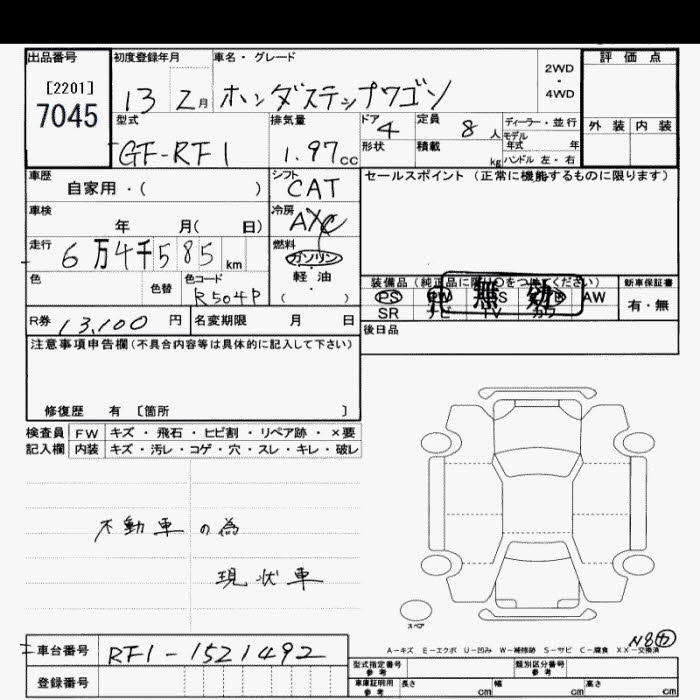 出品番号 初度登録年月 車名・グレード 2WD・4WD 評価点
[2201]
7045
13 2月 ホンダステップワゴン
型式 排気量 ドア 定員 ディーラー・並行 外装 内装
GF-RF1 1.97cc 4 8人 モデル年式 年
形状 積載 kg ハンドル 左・右
車歴 シフト セールスポイント (正常に機能するものに限ります)
自家用・( ) CAT
車検 冷房
年 月( 日) A/C
走行 燃料
6万4千585km ガソリン
色 色替 色コード 軽油 装備品 (純正品に限り○をつけてください) 新車保証書
R504P ( ) PS PW 無効 AW 有・無
SR ナビ TV カワ
R券 13,100円 名変期限 月 日 後日品
注意事項申告欄 (不具合内容等は具体的に記入して下さい)
修復歴 有 [箇所 ]
検査員 FW キズ・飛石・ヒビ割・リペア跡・×要
記入欄 内装 キズ・汚レ・コゲ・穴・スレ・キレ・破レ
不動車の為
現状車
スペア
N8カ
A-キズ E-エクボ U-凹み W-補修跡 S-サビ C-腐食 XX-交換済
車台番号 RF1-1521492
登録番号
型式指定番号 参考 類別区分番号 参考
車庫証明用 参考 長さ cm 幅 cm 高さ cm